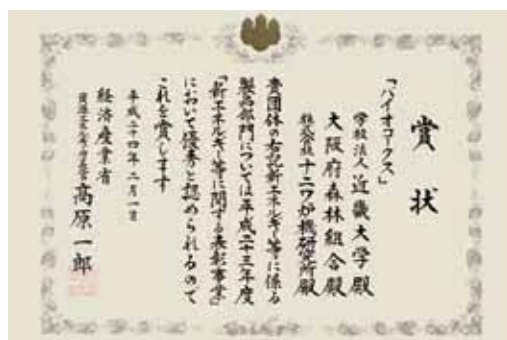 賞状
「バイオコークス」
学校法人 近畿大学殿
大阪府森林組合殿
株式会社 ナニワ炉機研究所殿
貴団体の右記新エネルギー等に係る
製品部門については平成二十三年度
「新エネルギー等に関する表彰事業」
において優秀と認められるので
これを賞します
平成二十四年二月一日
経済産業省
資源エネルギー庁長官 高原一郎